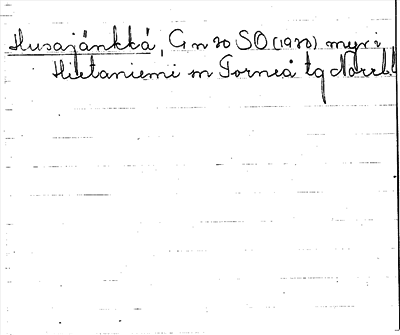 Husajänkkä, G n 20 SO (1920) myr i
Hietaniemi sn Torneå tg Norrb.